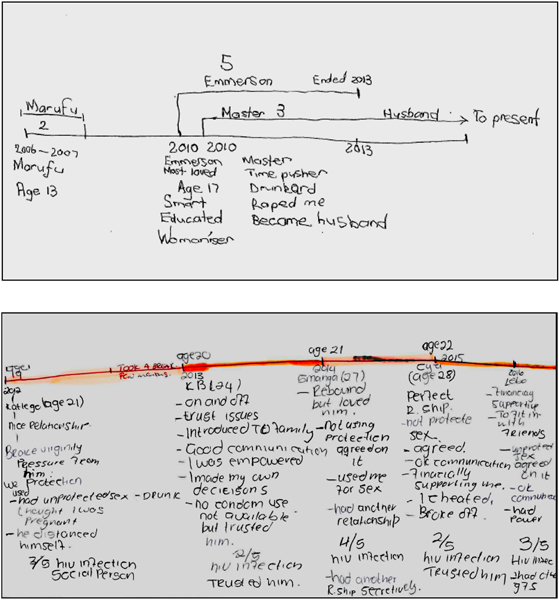 5
Emmerson Ended 2013
Marufu
Master 3 Husband To present
2
2006-2007
2010 2010 2013
Marufu
Age 13
Emmerson
Most loved
Age 17
Smart
Educated
Womaniser
Master
Time pusher
Drunkard
Raped me
Become husband
age 20
age 21
age 22
TOOK A BREAK
Few months.
19
2012
2013
2014
2015
2016
(age 21)
Nice Relationship
Broke virginity
Pressure from
him.
we protection
used
-had unprotected sex - DRUNK
thought I was
pregnant
-he distanced
himself.
3/5 hiv infection
Social Person
KB (24)
-on and off
-trust issues
-Introduced TO Family
-Good communication
-I was empowered
-I made my own
decisions
-no condom use
not available
but trusted
him.
2/5
hiv infection
TRusted him.
(27)
-Rebound
but loved
him.
-not using
protection
agreed on
it
-used me
for sex
-had another
relationship
4/5
hiv infection
-had another
R.ship secretively.
(age 28)
Perfect
R.ship.
-not protecte
sex.
-agreed.
-ok communication
-Financially
supporting me.
-I cheated.
-Broke off.
2/5
hiv infection
Trusted him
-Financially
supportive
-To fit in
with
friends
-unproted
sex
agreed
on it
-ok
-had
Power
3/5